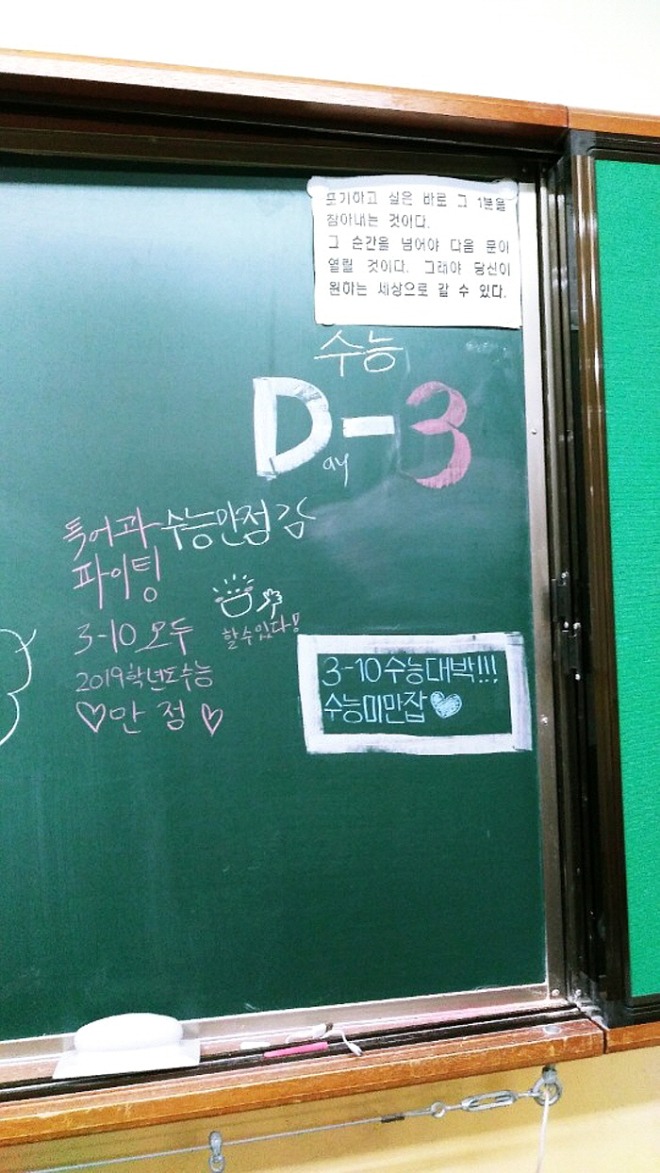 포기하고 싶은 바로 그 1분을
참아내는 것이다.
그 순간을 넘어야 다음 문이
열릴 것이다. 그래야 당신이
원하는 세상으로 갈 수 있다.
수능
Day-3
특어과 수능만점 감
파이팅
할 수 있다!
3-10 모두
2019학년도 수능
♡만점♡
3-10 수능대박!!!
수능미만잡♥